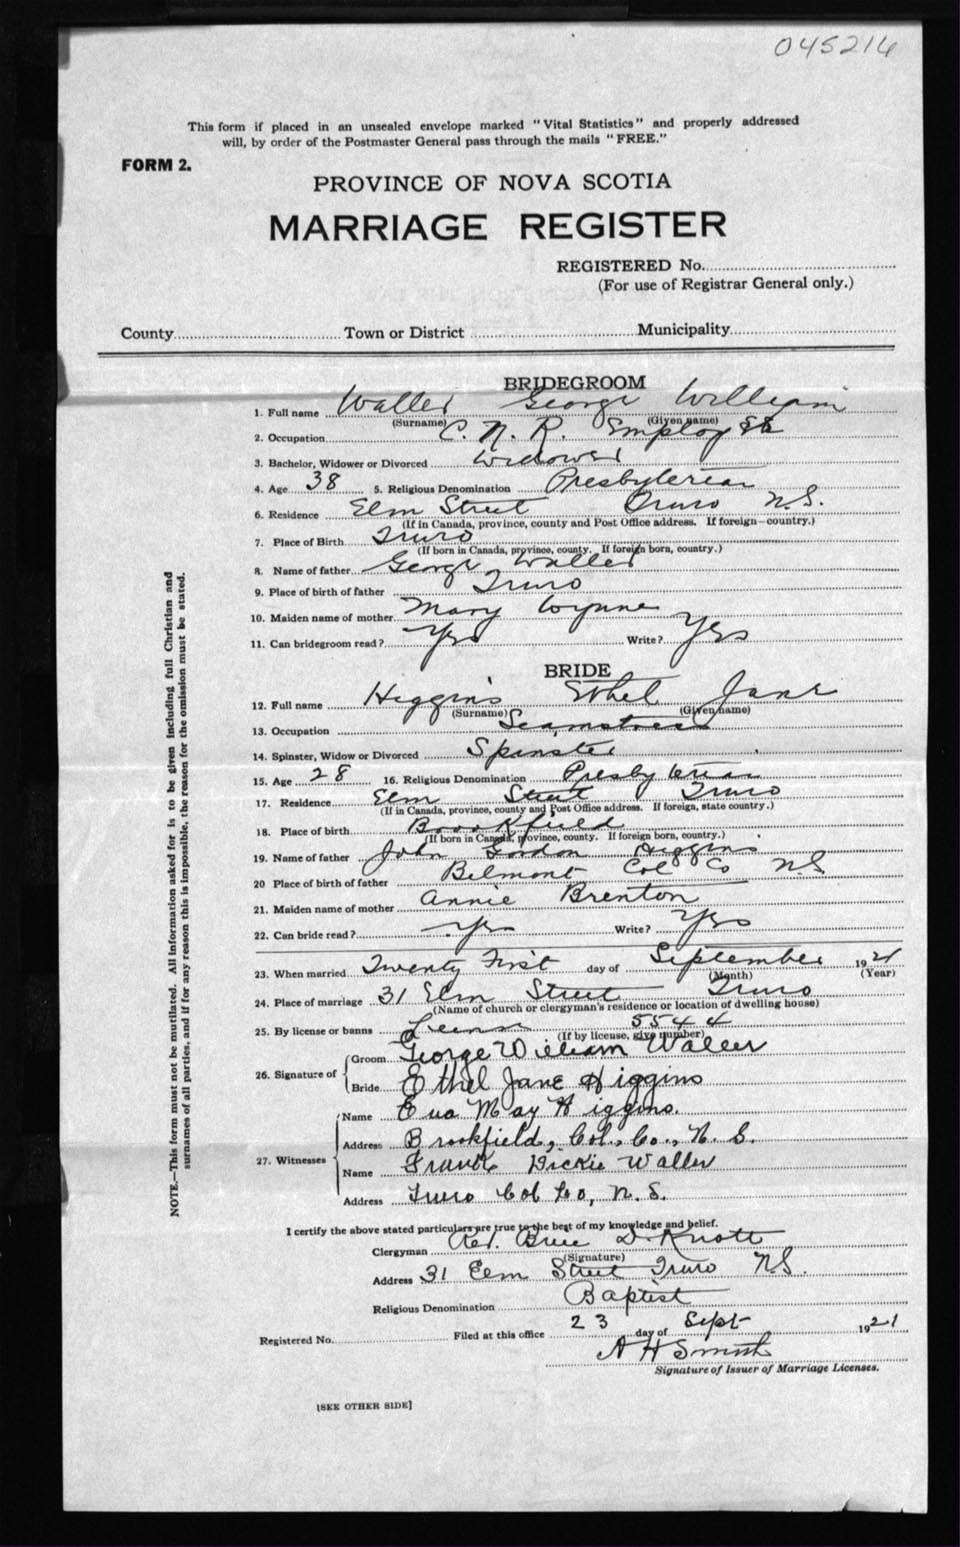 045216
This form if placed in an unsealed envelope marked "Vital Statistics" and properly addressed
will, by order of the Postmaster General pass through the mails "FREE."
FORM 2.
PROVINCE OF NOVA SCOTIA
MARRIAGE REGISTER
REGISTERED No.
(For use of Registrar General only.)
County Town or District Municipality
BRIDEGROOM
1. Full name Waller George William
(Surname) (Given name)
2. Occupation C. N. R. Employee
3. Bachelor, Widower or Divorced Widower
4. Age 38 5. Religious Denomination Presbyterian
6. Residence Elm Street Truro N.S.
(If in Canada, province, county and Post Office address. If foreign—country.)
7. Place of Birth Truro
(If born in Canada, province, county. If foreign born, country.)
8. Name of father George Waller
9. Place of birth of father Truro
10. Maiden name of mother Mary Wynne
11. Can bridegroom read? Yes Write? Yes
BRIDE
12. Full name Higgins Ethel Jane
(Surname) (Given name)
13. Occupation Seamstress
14. Spinster, Widow or Divorced Spinster
15. Age 28 16. Religious Denomination Presbyterian
17. Residence Elm Street Truro
(If in Canada, province, county and Post Office address. If foreign, state country.)
18. Place of birth Brookfield
(If born in Canada, province, county. If foreign born, country.)
19. Name of father John Gordon Higgins
20 Place of birth of father Belmont Col Co N.S.
21. Maiden name of mother Annie Brenton
22. Can bride read? Yes Write? Yes
23. When married Twenty First day of September 1921
(Month) (Year)
24. Place of marriage 31 Elm Street Truro
(Name of church or clergyman's residence or location of dwelling house)
25. By license or banns License 5544
(If by license, give number)
26. Signature of Groom George William Waller
Bride Ethel Jane Higgins
27. Witnesses Name Eva May Higgins.
Address Brookfield, Col., Co., N. S.
Name Frank Dickie Waller
Address Truro Col Co, N. S.
I certify the above stated particulars are true to the best of my knowledge and belief.
Clergyman Rev. D. Knott
(Signature)
Address 31 Elm Street Truro N.S.
Religious Denomination Baptist
Registered No. Filed at this office 23 day of Sept 1921
A H Smith
Signature of Issuer of Marriage Licenses.
[SEE OTHER SIDE]
NOTE.—This form must not be mutilated. All information asked for is to be given including full Christian and
surnames of all parties, and if for any reason this is impossible, the reason for the omission must be stated.